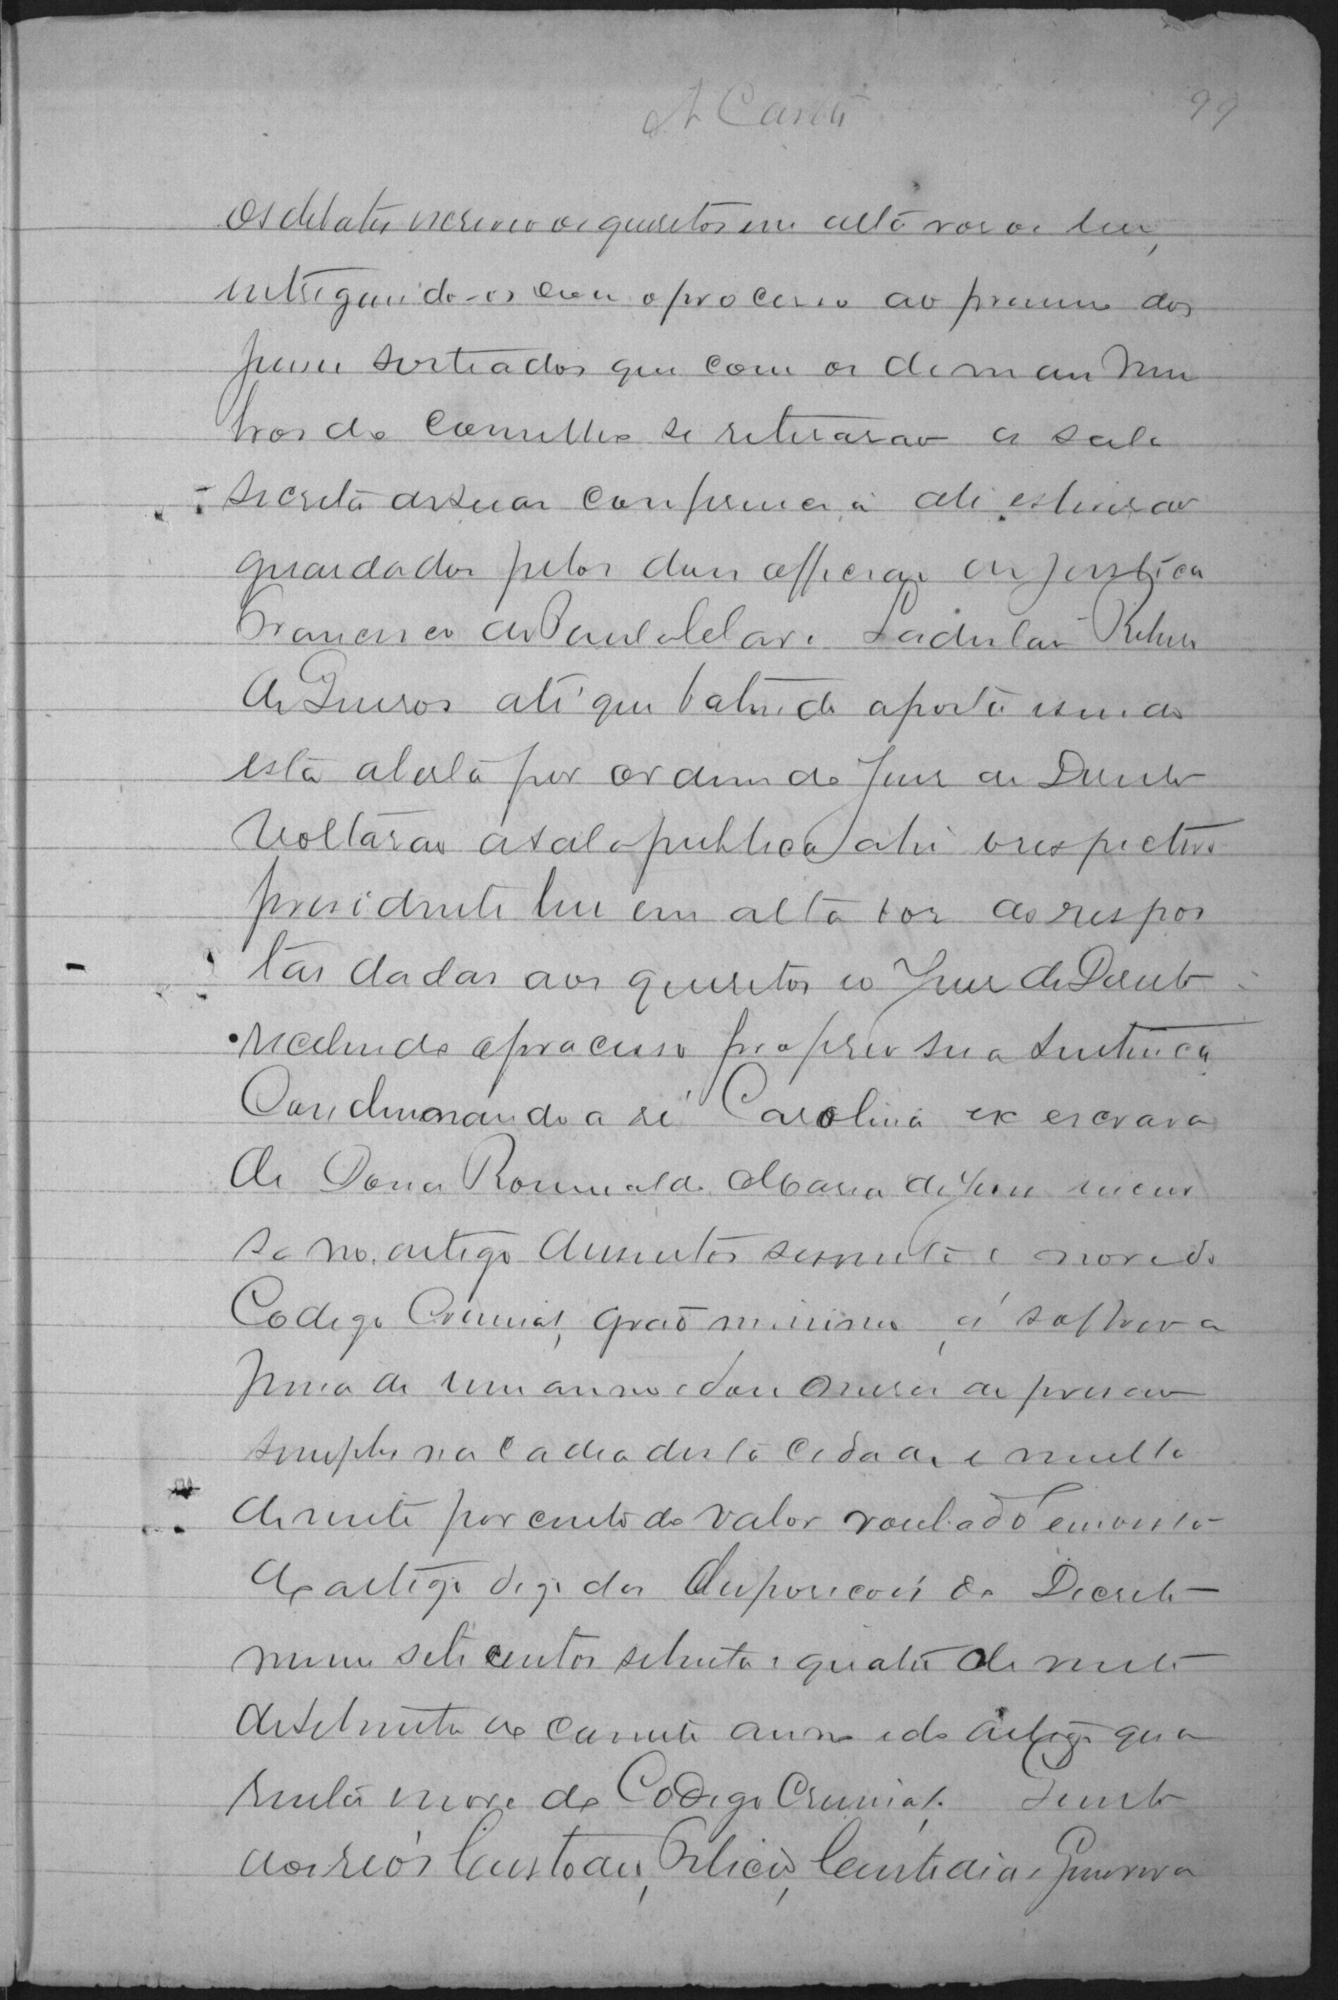 99
os debates escreveo os quesitos em alta voz os leu,
entregando-os com o processo ao primeiro dos
juises sorteados que com os demais mem
bros do conselho se retirarão a sala
secreta de suas conferencia ali estiverão
guardados pelos dous officiaes de justiça
Francisco de Paula e Ladislau
de Queiros até que batendo a porta e sendo
esta aberta por ordem do Juis de Direito
voltarão a sala publica ahi o respectivo
presidente leu em alta voz as respos
tas dadas aos quesitos e o Juis de Direito
recebendo o processo proferio sua sentença
Condemnando a ré Carolina ex escrava
de Dona Romualda Maria de Jesus incur
sa no artigo dusentos sessenta e nove do
Codigo Criminal, grao minimo, á soffrer a
pena de um anno e dous meses de prisão
simples na cadea desta cidade e multa
de vinte por cento do valor roubado em vista
do artigo das disposicoes do Decreto
numero sete centos setenta e quatro de vinte
de Setembro do corrente anno e do artigo qua
renta nove do Codigo Criminal. Quanto
aos reos Custodio, Felicio, Custodia e Genoveva